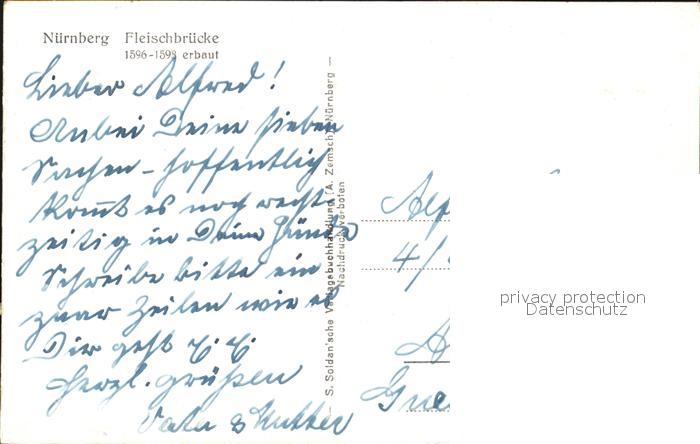 Nürnberg Fleischbrücke
1596-1598 erbaut
Lieber Alfred!
Anbei Deine sieben
Sachen – hoffentlich
kommt es noch recht-
zeitig in Deine Hände
Schreibe bitte ein
zwar Zeilen wie es
Dir geht
Herzl. grüßen
Vater & Mutter
— S. Soldan'sche Verlagsbuchhandlung (A. Zemsch) Nürnberg —
Nachdruck verboten
Alf
4/
privacy protection
Datenschutz